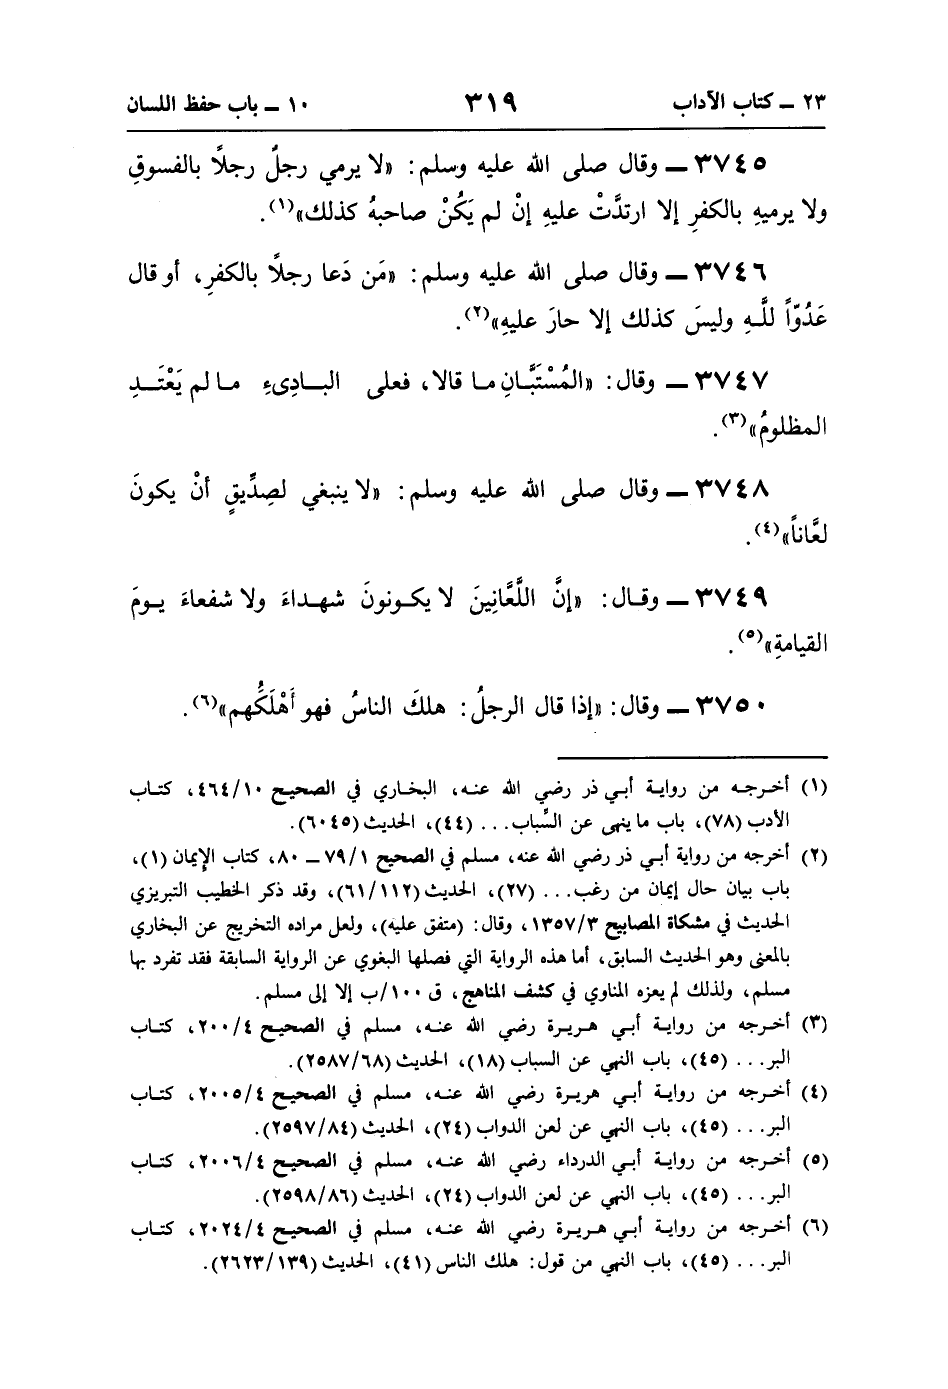 ٢٣ ــ كتاب الآداب ٣١٩ ١٠ ــ باب حفظ اللسان
٣٧٤٥ ــ وقال صلى الله عليه وسلم: «لا يرمي رجلٌ رجلًا بالفسوقِ
ولا يرميهِ بالكفرِ إلا ارتدَّتْ عليهِ إنْ لم يَكُنْ صاحبهُ كذلك»(١).
٣٧٤٦ ــ وقال صلى الله عليه وسلم: «مَن دَعا رجلًا بالكفرِ، أو قال
عَدُوّاً للَّهِ وليسَ كذلك إلا حارَ عليهِ»(٢).
٣٧٤٧ ــ وقال: «المُسْتَبَّانِ ما قالا، فعلى البادِىءِ ما لم يَعْتَدِ
المظلومُ»(٣).
٣٧٤٨ ــ وقال صلى الله عليه وسلم: «لا ينبغي لصِدِّيقٍ أنْ يكونَ
لعَّاناً»(٤).
٣٧٤٩ ــ وقال: «إنَّ اللَّعَّانِينَ لا يكونونَ شهداءَ ولا شفعاءَ يومَ
القيامةِ»(٥).
٣٧٥٠ ــ وقال: «إذا قال الرجلُ: هلكَ الناسُ فهو أَهْلَكَُهم»(٦).
(١) أخرجه من رواية أبي ذر رضي الله عنه، البخاري في الصحيح ٤٦٤/١٠، كتاب
الأدب (٧٨)، باب ما ينهى عن السِّباب... (٤٤)، الحديث (٦٠٤٥).
(٢) أخرجه من رواية أبي ذر رضي الله عنه، مسلم في الصحيح ٧٩/١ ــ ٨٠، كتاب الإيمان (١)،
باب بيان حال إيمان من رغب... (٢٧)، الحديث (٦١/١١٢)، وقد ذكر الخطيب التبريزي
الحديث في مشكاة المصابيح ١٣٥٧/٣، وقال: (متفق عليه)، ولعل مراده التخريج عن البخاري
بالمعنى وهو الحديث السابق، أما هذه الرواية التي فصلها البغوي عن الرواية السابقة فقد تفرد بها
مسلم، ولذلك لم يعزه المناوي في كشف المناهج، ق ١٠٠/ب إلا إلى مسلم.
(٣) أخرجه من رواية أبي هريرة رضي الله عنه، مسلم في الصحيح ٢٠٠/٤، كتاب
البر... (٤٥)، باب النهي عن السباب (١٨)، الحديث (٢٥٨٧/٦٨).
(٤) أخرجه من رواية أبي هريرة رضي الله عنه، مسلم في الصحيح ٢٠٠٥/٤، كتاب
البر... (٤٥)، باب النهي عن لعن الدواب (٢٤)، الحديث (٢٥٩٧/٨٤).
(٥) أخرجه من رواية أبي الدرداء رضي الله عنه، مسلم في الصحيح ٢٠٠٦/٤، كتاب
البر... (٤٥)، باب النهي عن لعن الدواب (٢٤)، الحديث (٢٥٩٨/٨٦).
(٦) أخرجه من رواية أبي هريرة رضي الله عنه، مسلم في الصحيح ٢٠٢٤/٤، كتاب
البر... (٤٥)، باب النهي من قول: هلك الناس (٤١)، الحديث (٢٦٢٣/١٣٩).